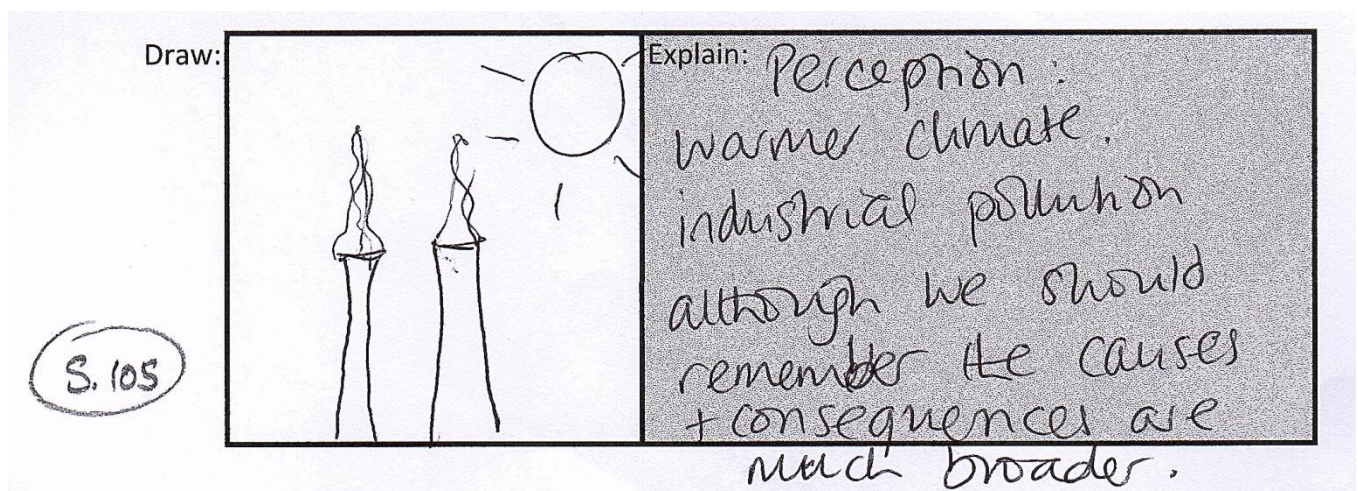 Draw:
Explain: Perception:
warmer climate.
industrial pollution
although we should
remember the causes
+ consequences are
much broader.
S.105